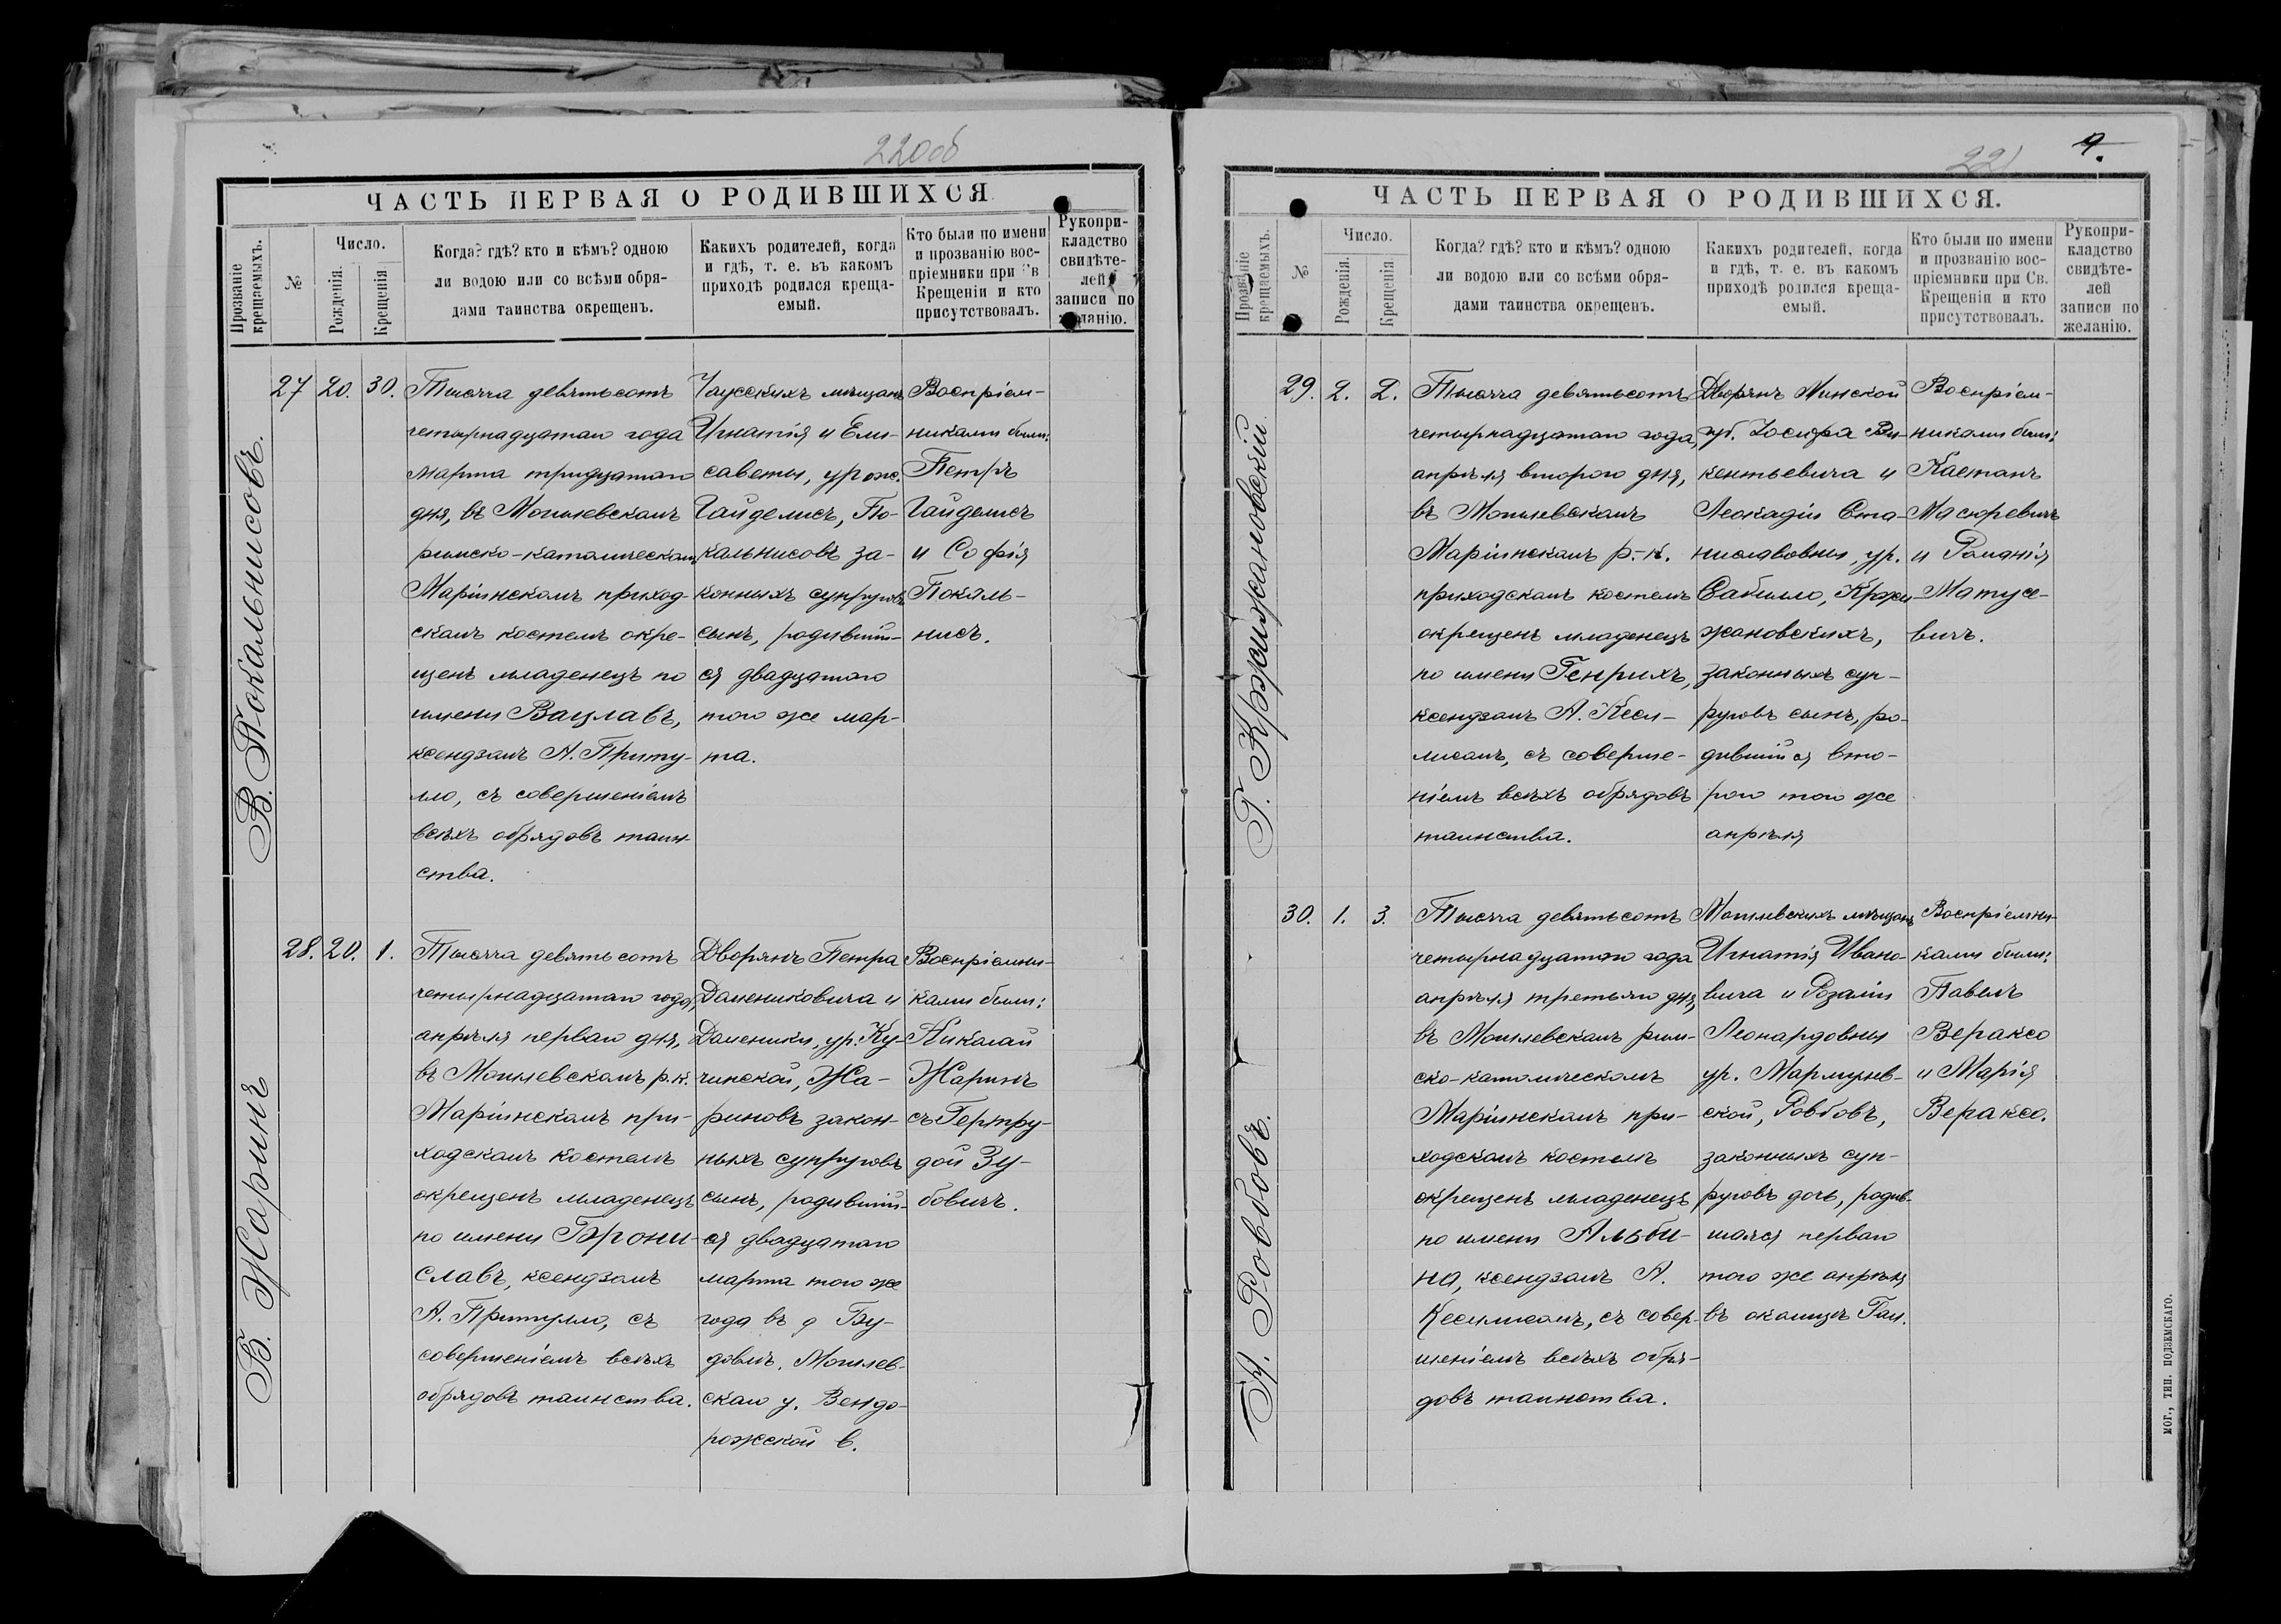 220об
ЧАСТЬ ПЕРВАЯ О РОДИВШИХСЯ
Прозваніе крещаемыхъ.
№
Число.
Рожденія.
Крещенія
Когда? гдѣ? кто и кѣмъ? одною
ли водою или со всѣми обря-
дами таинства окрещенъ.
Какихъ родителей, когда
и гдѣ, т. е. въ какомъ
приходѣ родился креща-
емый.
Кто были по имени
и прозванію вос-
пріемники при Св
Крещеніи и кто
присутствовалъ.
Рукопри-
кладство
свидѣте-
лей
записи по
желанію.
В. Покальнисовъ.
27
20.
30.
Тысяча девятьсотъ
четырнадцатаго года
марта тридцатаго
дня, въ Могилевскомъ
римско-католическомъ
Маріинскомъ приход-
скомъ костелѣ окре-
щенъ младенецъ по
имени Вацлавъ,
ксендзомъ А.Приту-
ло, съ совершеніемъ
всѣхъ обрядовъ таин-
ства.
Чаусскихъ мѣщанъ
Игнатія и Ели-
саветы, урож.
Гайделисъ, По-
кальнисовъ за-
конныхъ супруговъ
сынъ, родивший-
ся двадцатаго
того же мар-
та.
Воспріем-
никами были:
Петръ
Гайделисъ
и Софія
Покаль-
нисъ.
Б. Жаринъ
28.
20.
1.
Тысяча девятьсотъ
четырнадцатаго года,
апрѣля перваго дня,
въ Могилевскомъ р.к.
Маріинскомъ при-
ходскомъ костелѣ
окрещенъ младенецъ
по имени Брони-
славъ, ксендзомъ
А. Притулло, съ
совершеніемъ всѣхъ
обрядовъ таинства.
Дворянъ Петра
Доминиковича и
Доменики, ур. Ку-
чинской, Жа-
риновъ закон-
ныхъ супруговъ
сынъ, родивший-
ся двадцатаго
марта того же
года въ д Бу-
довлѣ, Могилев-
скаго у. Вендо-
рожской в.
Воспріемни-
ками были:
Николай
Жаринъ
съ Гертру-
дой Зу-
бовичъ.
221
9.
ЧАСТЬ ПЕРВАЯ О РОДИВШИХСЯ.
Прозваніе крещаемыхъ.
№
Число.
Рожденія.
Крещенія.
Когда? гдѣ? кто и кѣмъ? одною
ли водою или со всѣми обря-
дами таинства окрещенъ.
Какихъ родителей, когда
и гдѣ, т. е. въ какомъ
приходѣ родился креща-
емый.
Кто были по имени
и прозванію вос-
пріемники при Св.
Крещеніи и кто
присутствовалъ.
Рукопри-
кладство
свидѣте-
лей
записи по
желанію.
Г. Кржижановскій
29.
2.
2.
Тысяча девятьсотъ
четырнадцатаго года,
апрѣля второго дня,
въ Могилевскомъ
Маріинскомъ р.-к.
приходскомъ костелѣ
окрещенъ младенецъ
по имени Генрихъ,
ксендзомъ А. Кеси-
лисомъ, съ соверше-
ніемъ всѣхъ обрядовъ
таинства.
Дворянъ Минской
губ. Іосифа Ви-
кентьевича и
Леокадіи Ста-
ниславовны, ур.
Сабилло, Кржи-
жановскихъ,
законныхъ суп-
руговъ сынъ, ро-
дившийся вто-
рого того же
апрѣля
Воспріем-
никами были:
Каетанъ
Масюревичъ
и Романія
Матусе-
вичъ.
А. Ровбовъ.
30.
1.
3.
Тысяча девятьсотъ
четырнадцатаго года
апрѣля третьяго дня,
въ Могилевскомъ рим-
ско-католическомъ
Маріинскомъ при-
ходскомъ костелѣ
окрещенъ младенецъ
по имени Альби-
на, ксендзомъ А.
Кесилисомъ, съ совер-
шеніемъ всѣхъ обря-
довъ таинства.
Могилевскихъ мѣщанъ
Игнатія Ивано-
вича и Розаліи
Леонардовны
ур.
ской, Ровбовъ,
законныхъ суп-
руговъ дочь, родив-
шаяся перваго
того же апрѣля
въ околицѣ Гаи.
Воспріемни-
ками были:
Павелъ
Вераксо
и Марія
Вераксо.
МОГ., ТИП. ПОДЗЕМСКАГО.